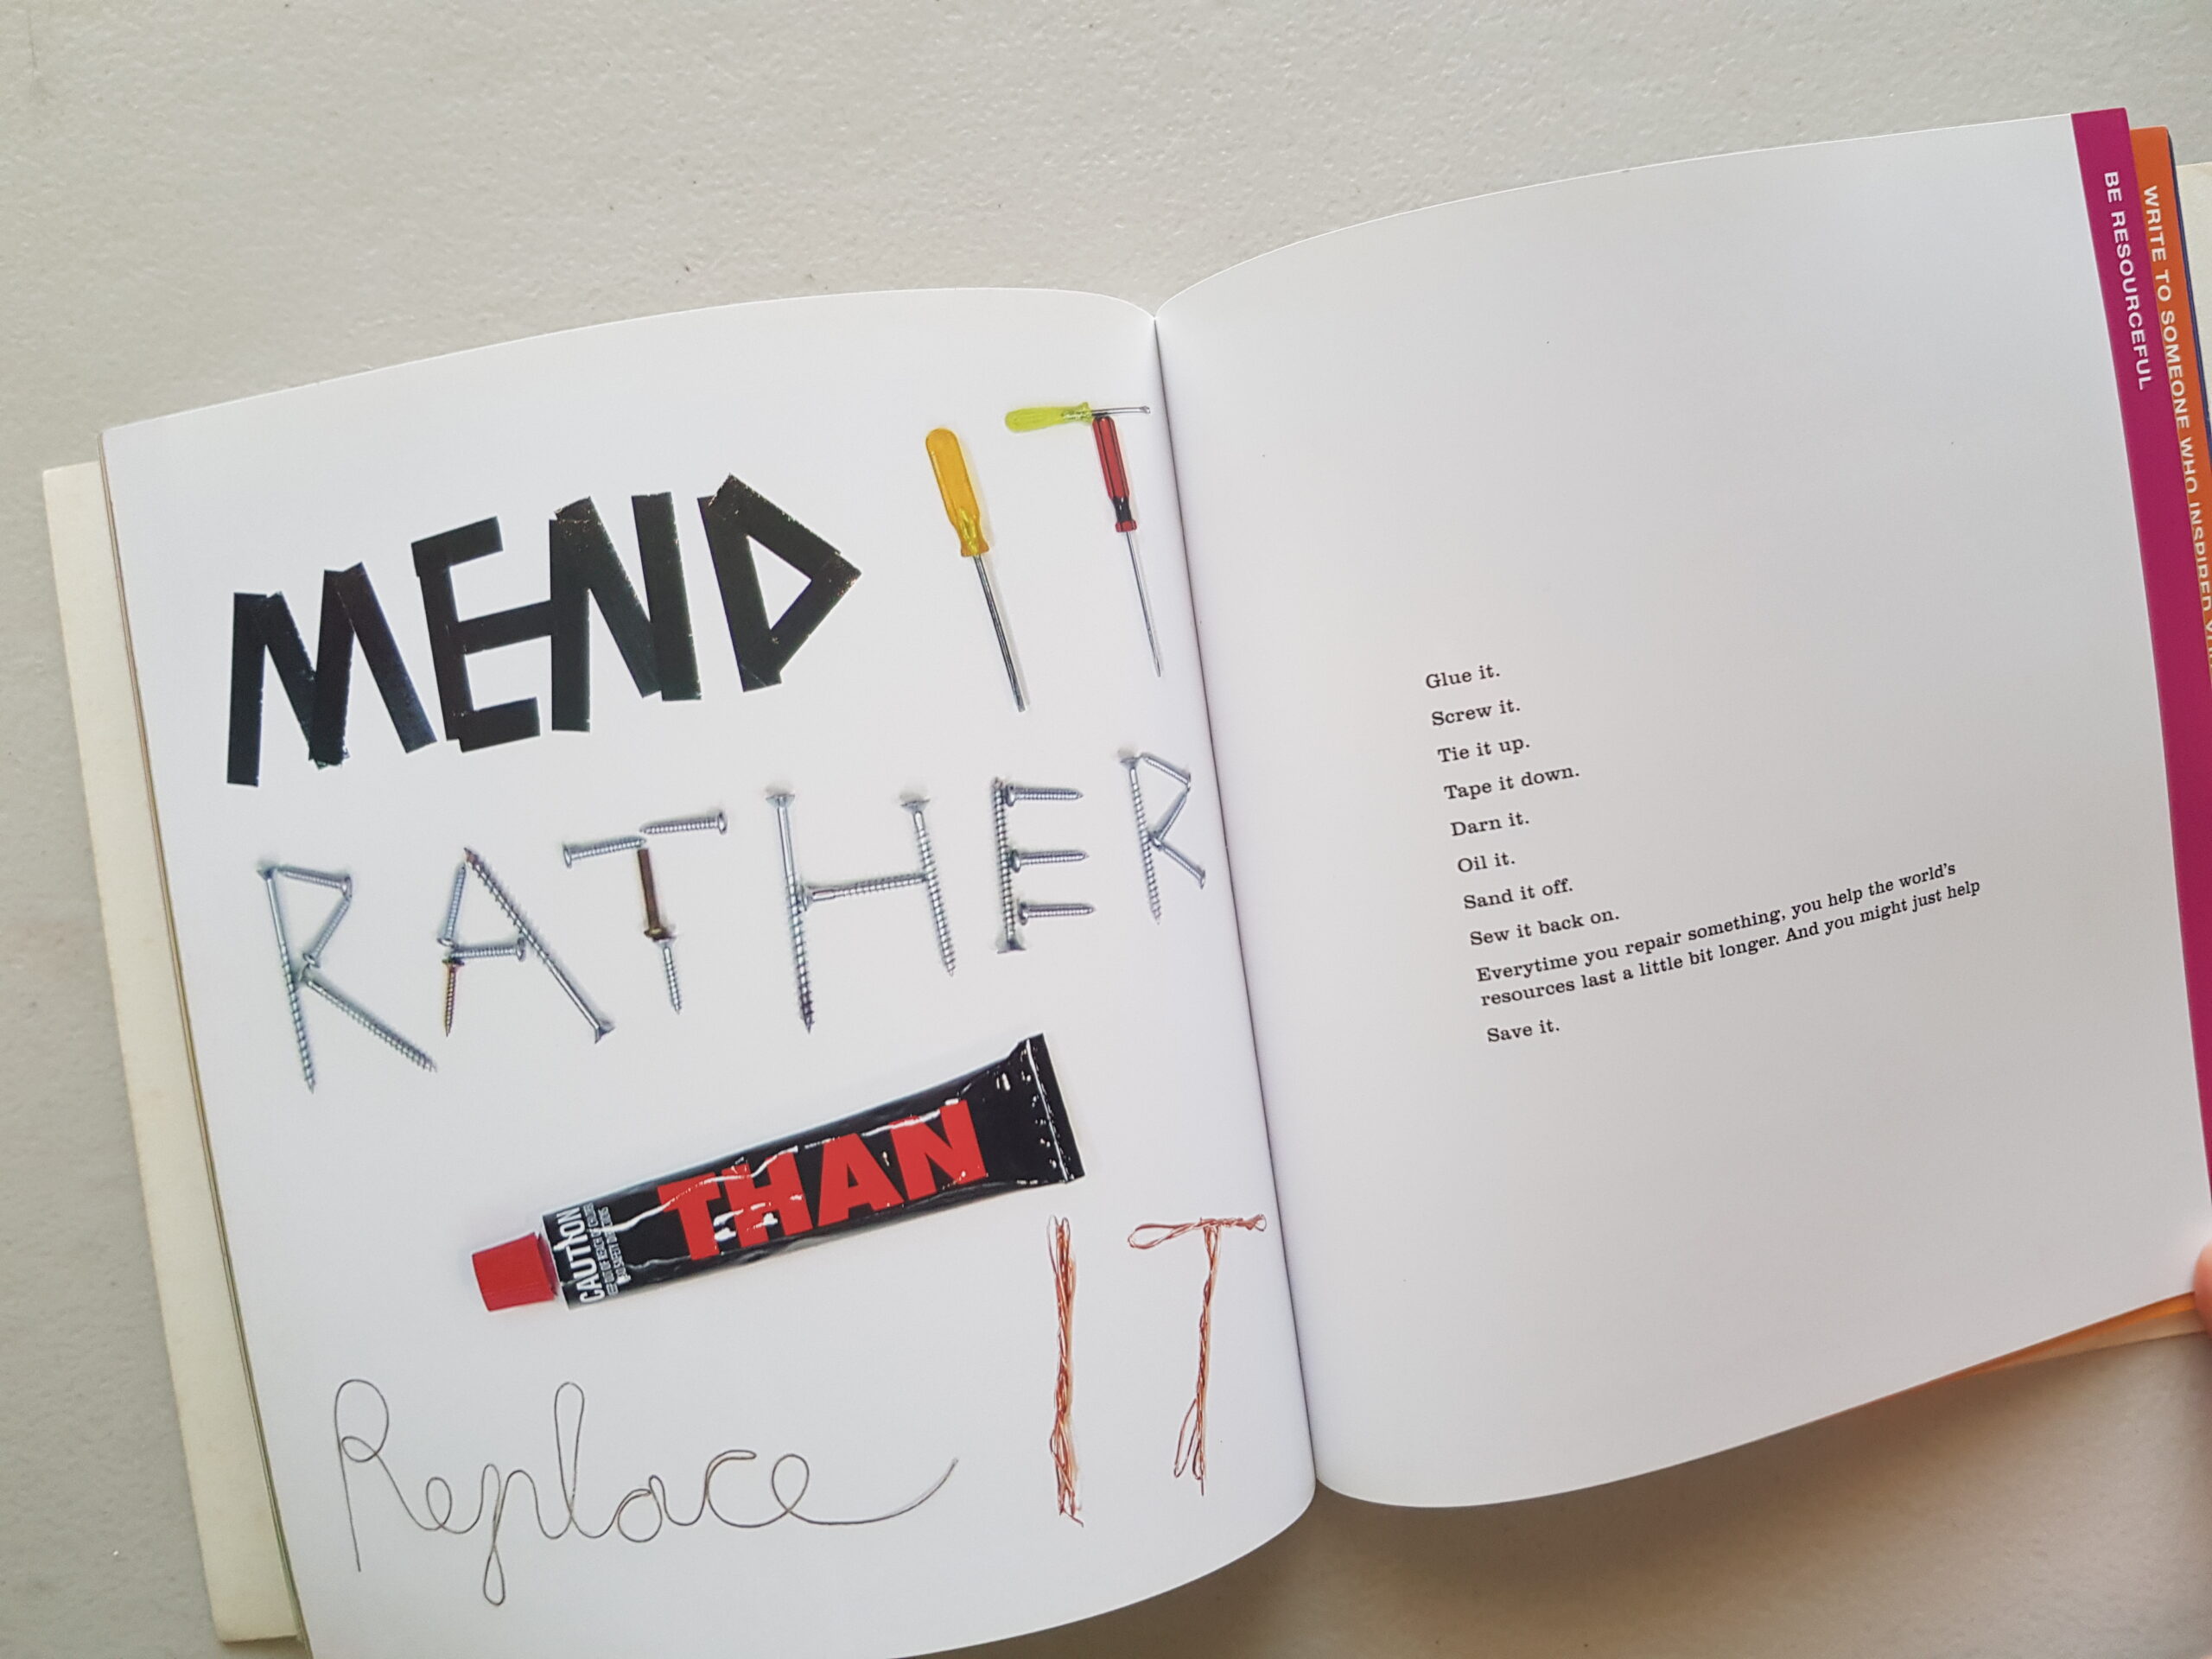 MEND IT
RATHER
THAN
CAUTION
Replace IT
Glue it.
Screw it.
Tie it up.
Tape it down.
Darn it.
Oil it.
Sand it off.
Sew it back on.
Everytime you repair something, you help the world's
resources last a little bit longer. And you might just help
Save it.
BE RESOURCEFUL
WRITE TO SOMEONE WHO INSPIRED